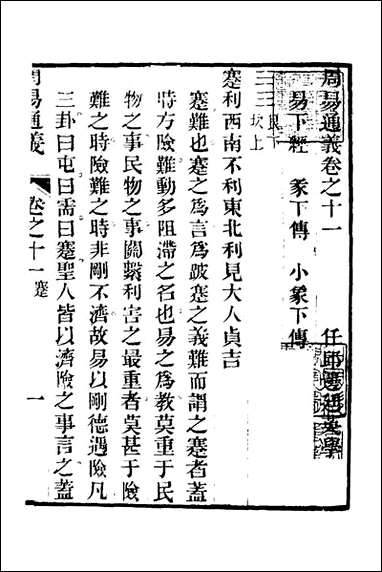 周易通義卷之十一
任邱邊廷英學
易下經 彖下傳 小象下傳
艮下
坎上
蹇利西南不利東北利見大人貞吉
蹇難也蹇之爲言爲跛蹇之義難而謂之蹇者蓋
時方險難動多阻滯之名也易之爲教莫重于民
物之事民物之事關繫利害之最重者莫甚于險
難之時險難之時非剛不濟故易以剛德遇險凡
三卦曰屯曰需曰蹇聖人皆以濟險之事言之蓋
周易通義
卷之十一 蹇
一